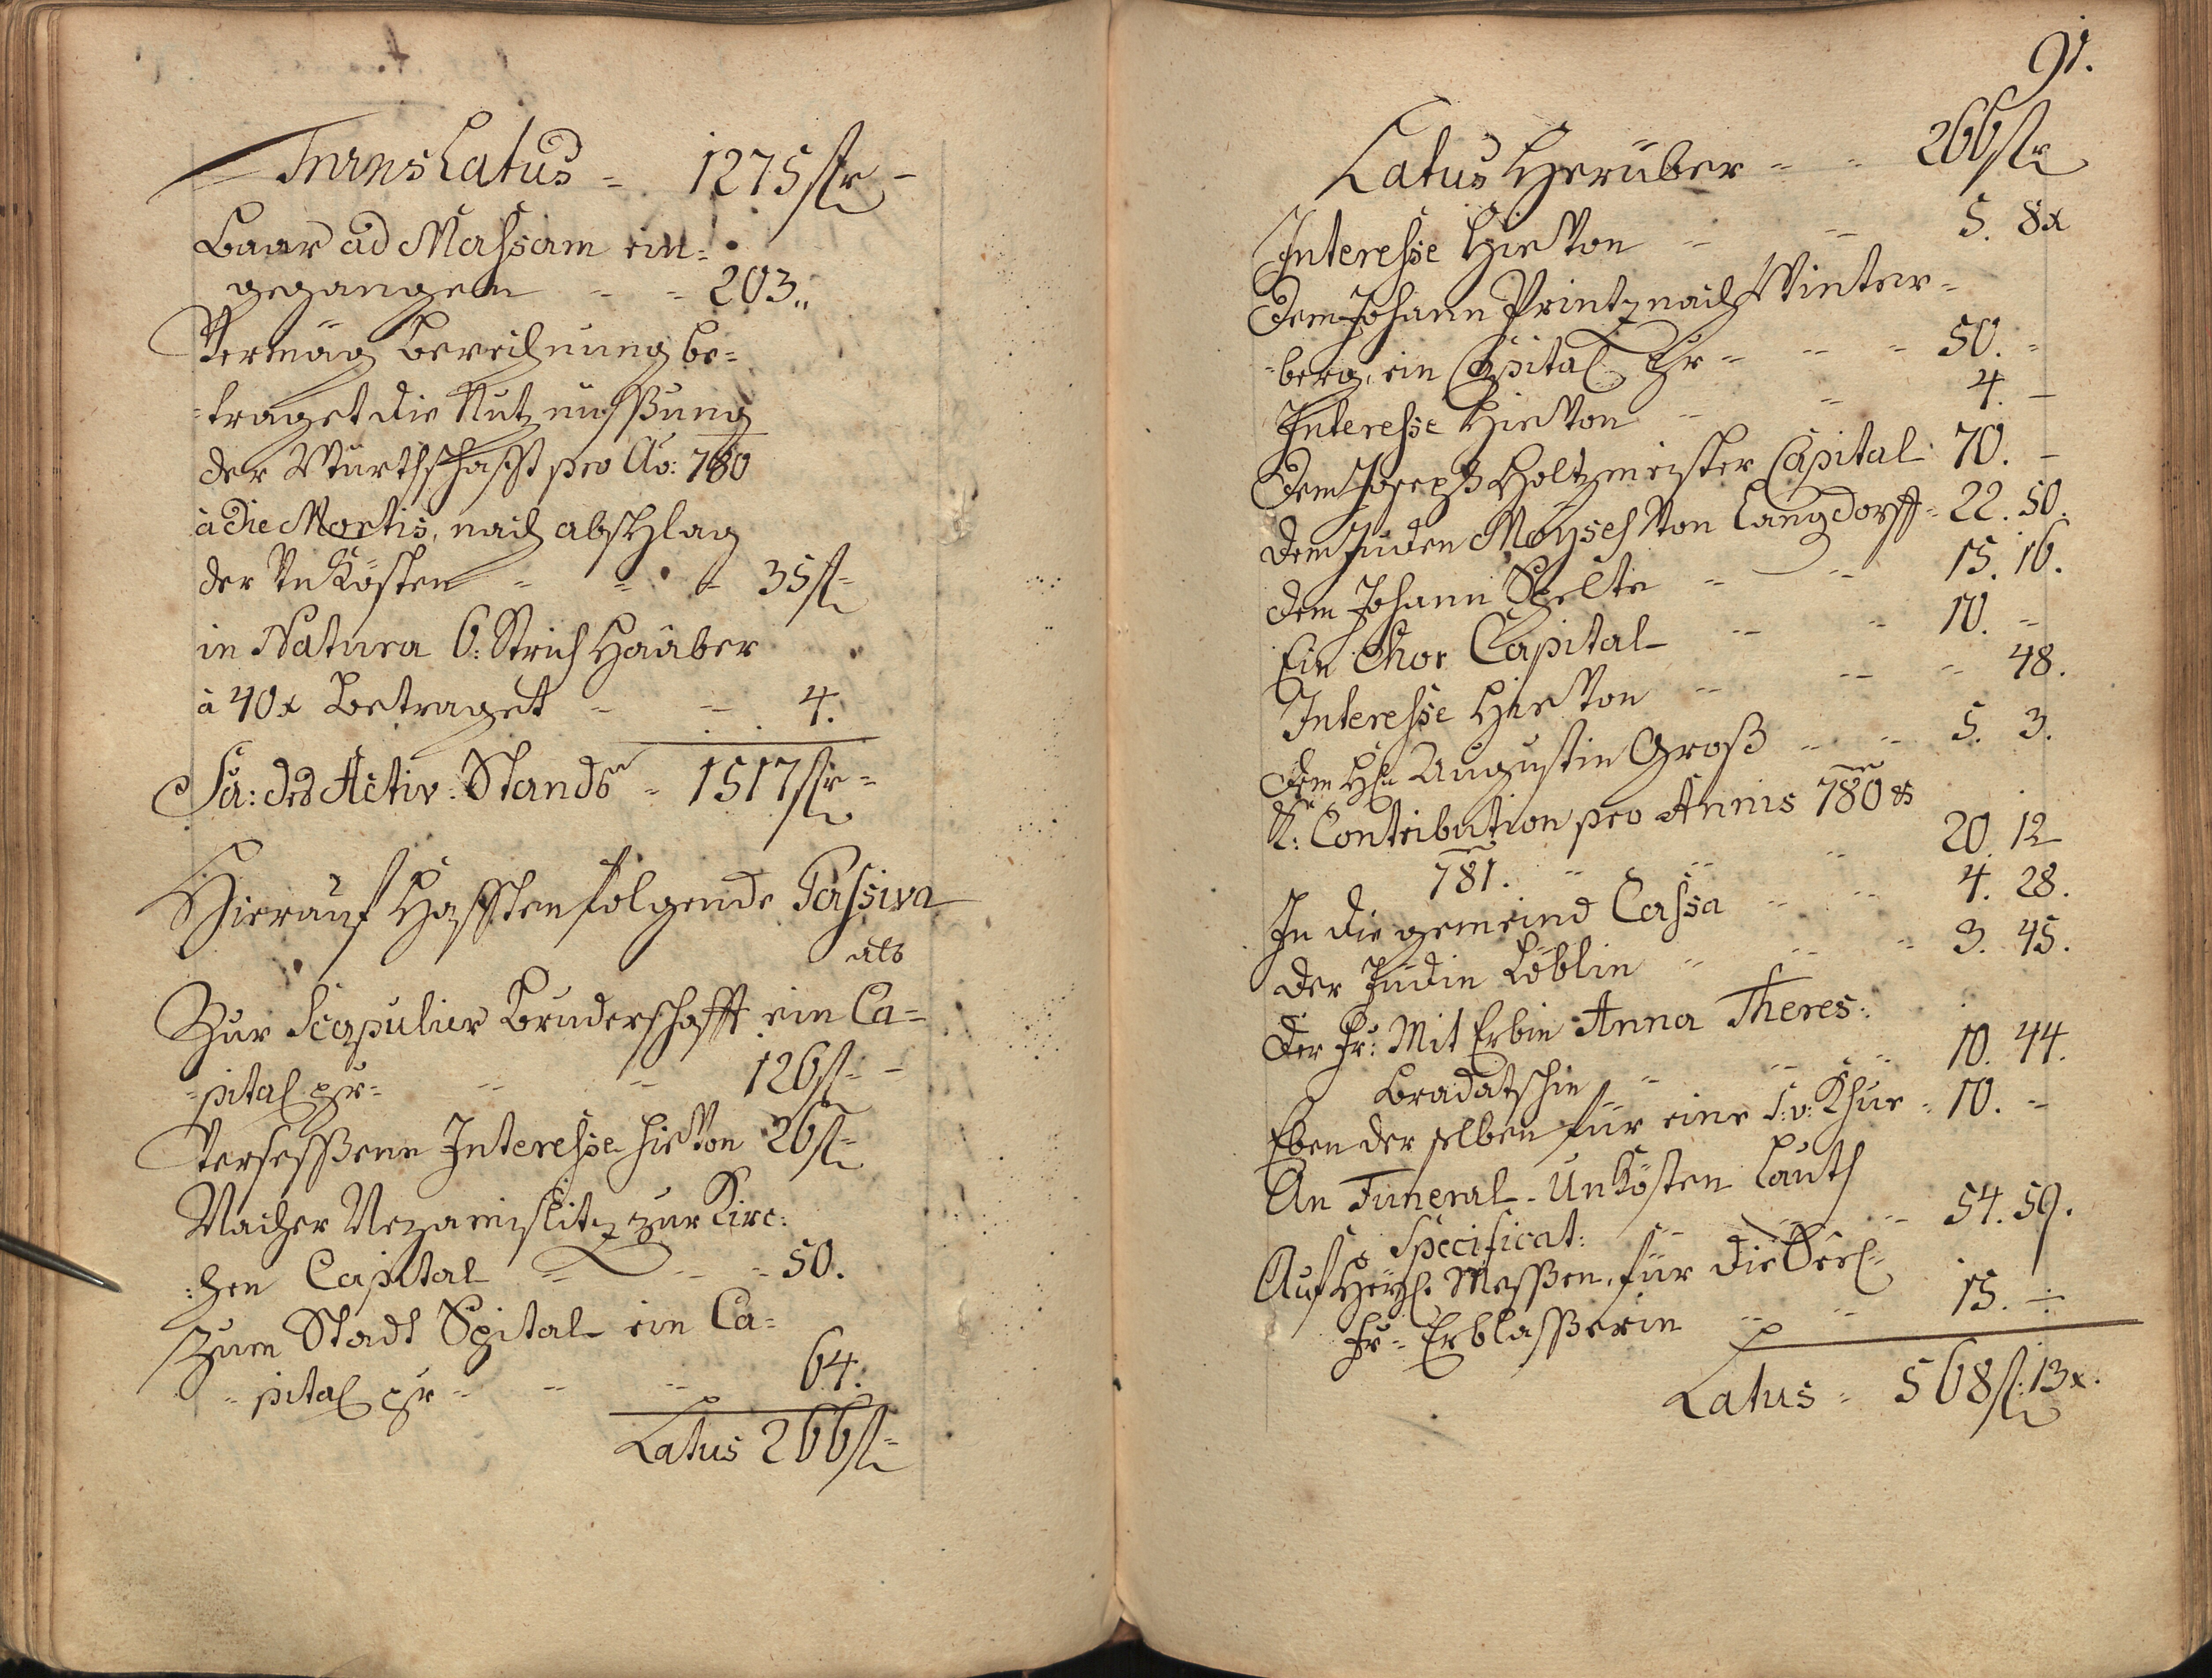 TransLatus = 1275 fr –
Baar ad Massam ein=
gegangen - - 203 "
Vermög Berechnung be=
=traget die Nutznüssung
der Würthschafft pro Ao: 780
à die Mortis, nach abschlag
der Unkösten - = - 35 f=
in Natura 6: Strich Haaber
à 40 x Betraget - - 4.
Sa: des Activ-Stands = 1517 fr =
Hierauf Hafften folgende Passiva
als
Zur Scapulier Bruderschafft ein Ca=
=pital pr = - - 126 f= -
Versessene Interesse hievon 26 f=
Nacher Nezamislitz zur Kirc:
:hen Capital = - - 50.
Zum Stadt Spital ein Ca=
=pital pr = - - 64.
Latus 266 f=
91.
Latus Herüber - - 266 fr
Interesse Hievon - - 5. 8x
Dem Johann Printz nach Winter=
=berg, ein Capital pr = - - 50. =
Interesse Hievon - - 4. –
Dem Joseph Holtzmeister Capital 70. –
Dem Juden Moyses von Langdorff = 22. 50.
Dem Johann Schelte - - 15. 16.
Ein Chor Capital - - 10. =
Interesse Hievon - - - 48.
Dem Hn Augustin Groß - - 5. 3.
K: Contribution pro Annis 780 &
781. - - - 20. 12
In die gemeind Cassa - - 4. 28.
Der Jüdin Löblin - - - 3. 45.
Der Fr: Mit Erbin Anna Theres:
Bradatschin - - - 10. 44.
Eben der selben für eine S: v: Khue - 10. =
An Funeral-Unkösten lauth
Specificat: - - - 54. 59.
Auf Heyl. Messen, für die Seel=
Fr= Erblasserin - - 15. –
Latus = 568 f: 13x.